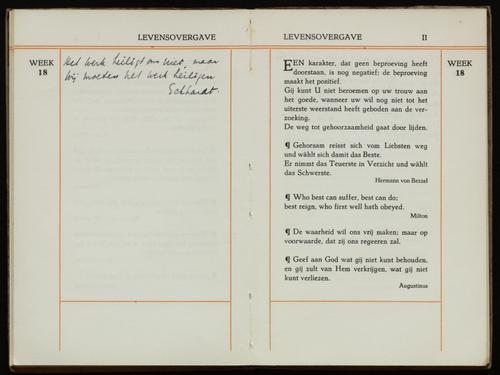 LEVENSOVERGAVE
WEEK
18
Het werk heiligt ons niet, maar
wij moeten het werk heiligen
Eckhardt.
LEVENSOVERGAVE II
WEEK
18
EEN karakter, dat geen beproeving heeft
doorstaan, is nog negatief; de beproeving
maakt het positief.
Gij kunt U niet beroemen op uw trouw aan
het goede, wanneer uw wil nog niet tot het
uiterste weerstand heeft geboden aan de ver-
zoeking.
De weg tot gehoorzaamheid gaat door lijden.
¶ Gehorsam reisst sich vom Liebsten weg
und wählt sich damit das Beste.
Er nimmt das Teuerste in Verzicht und wählt
das Schwerste.
Hermann von Bezzel
¶ Who best can suffer, best can do;
best reign, who first well hath obeyed.
Milton
¶ De waarheid wil ons vrij maken; maar op
voorwaarde, dat zij ons regeeren zal.
¶ Geef aan God wat gij niet kunt behouden,
en gij zult van Hem verkrijgen, wat gij niet
kunt verliezen.
Augustinus